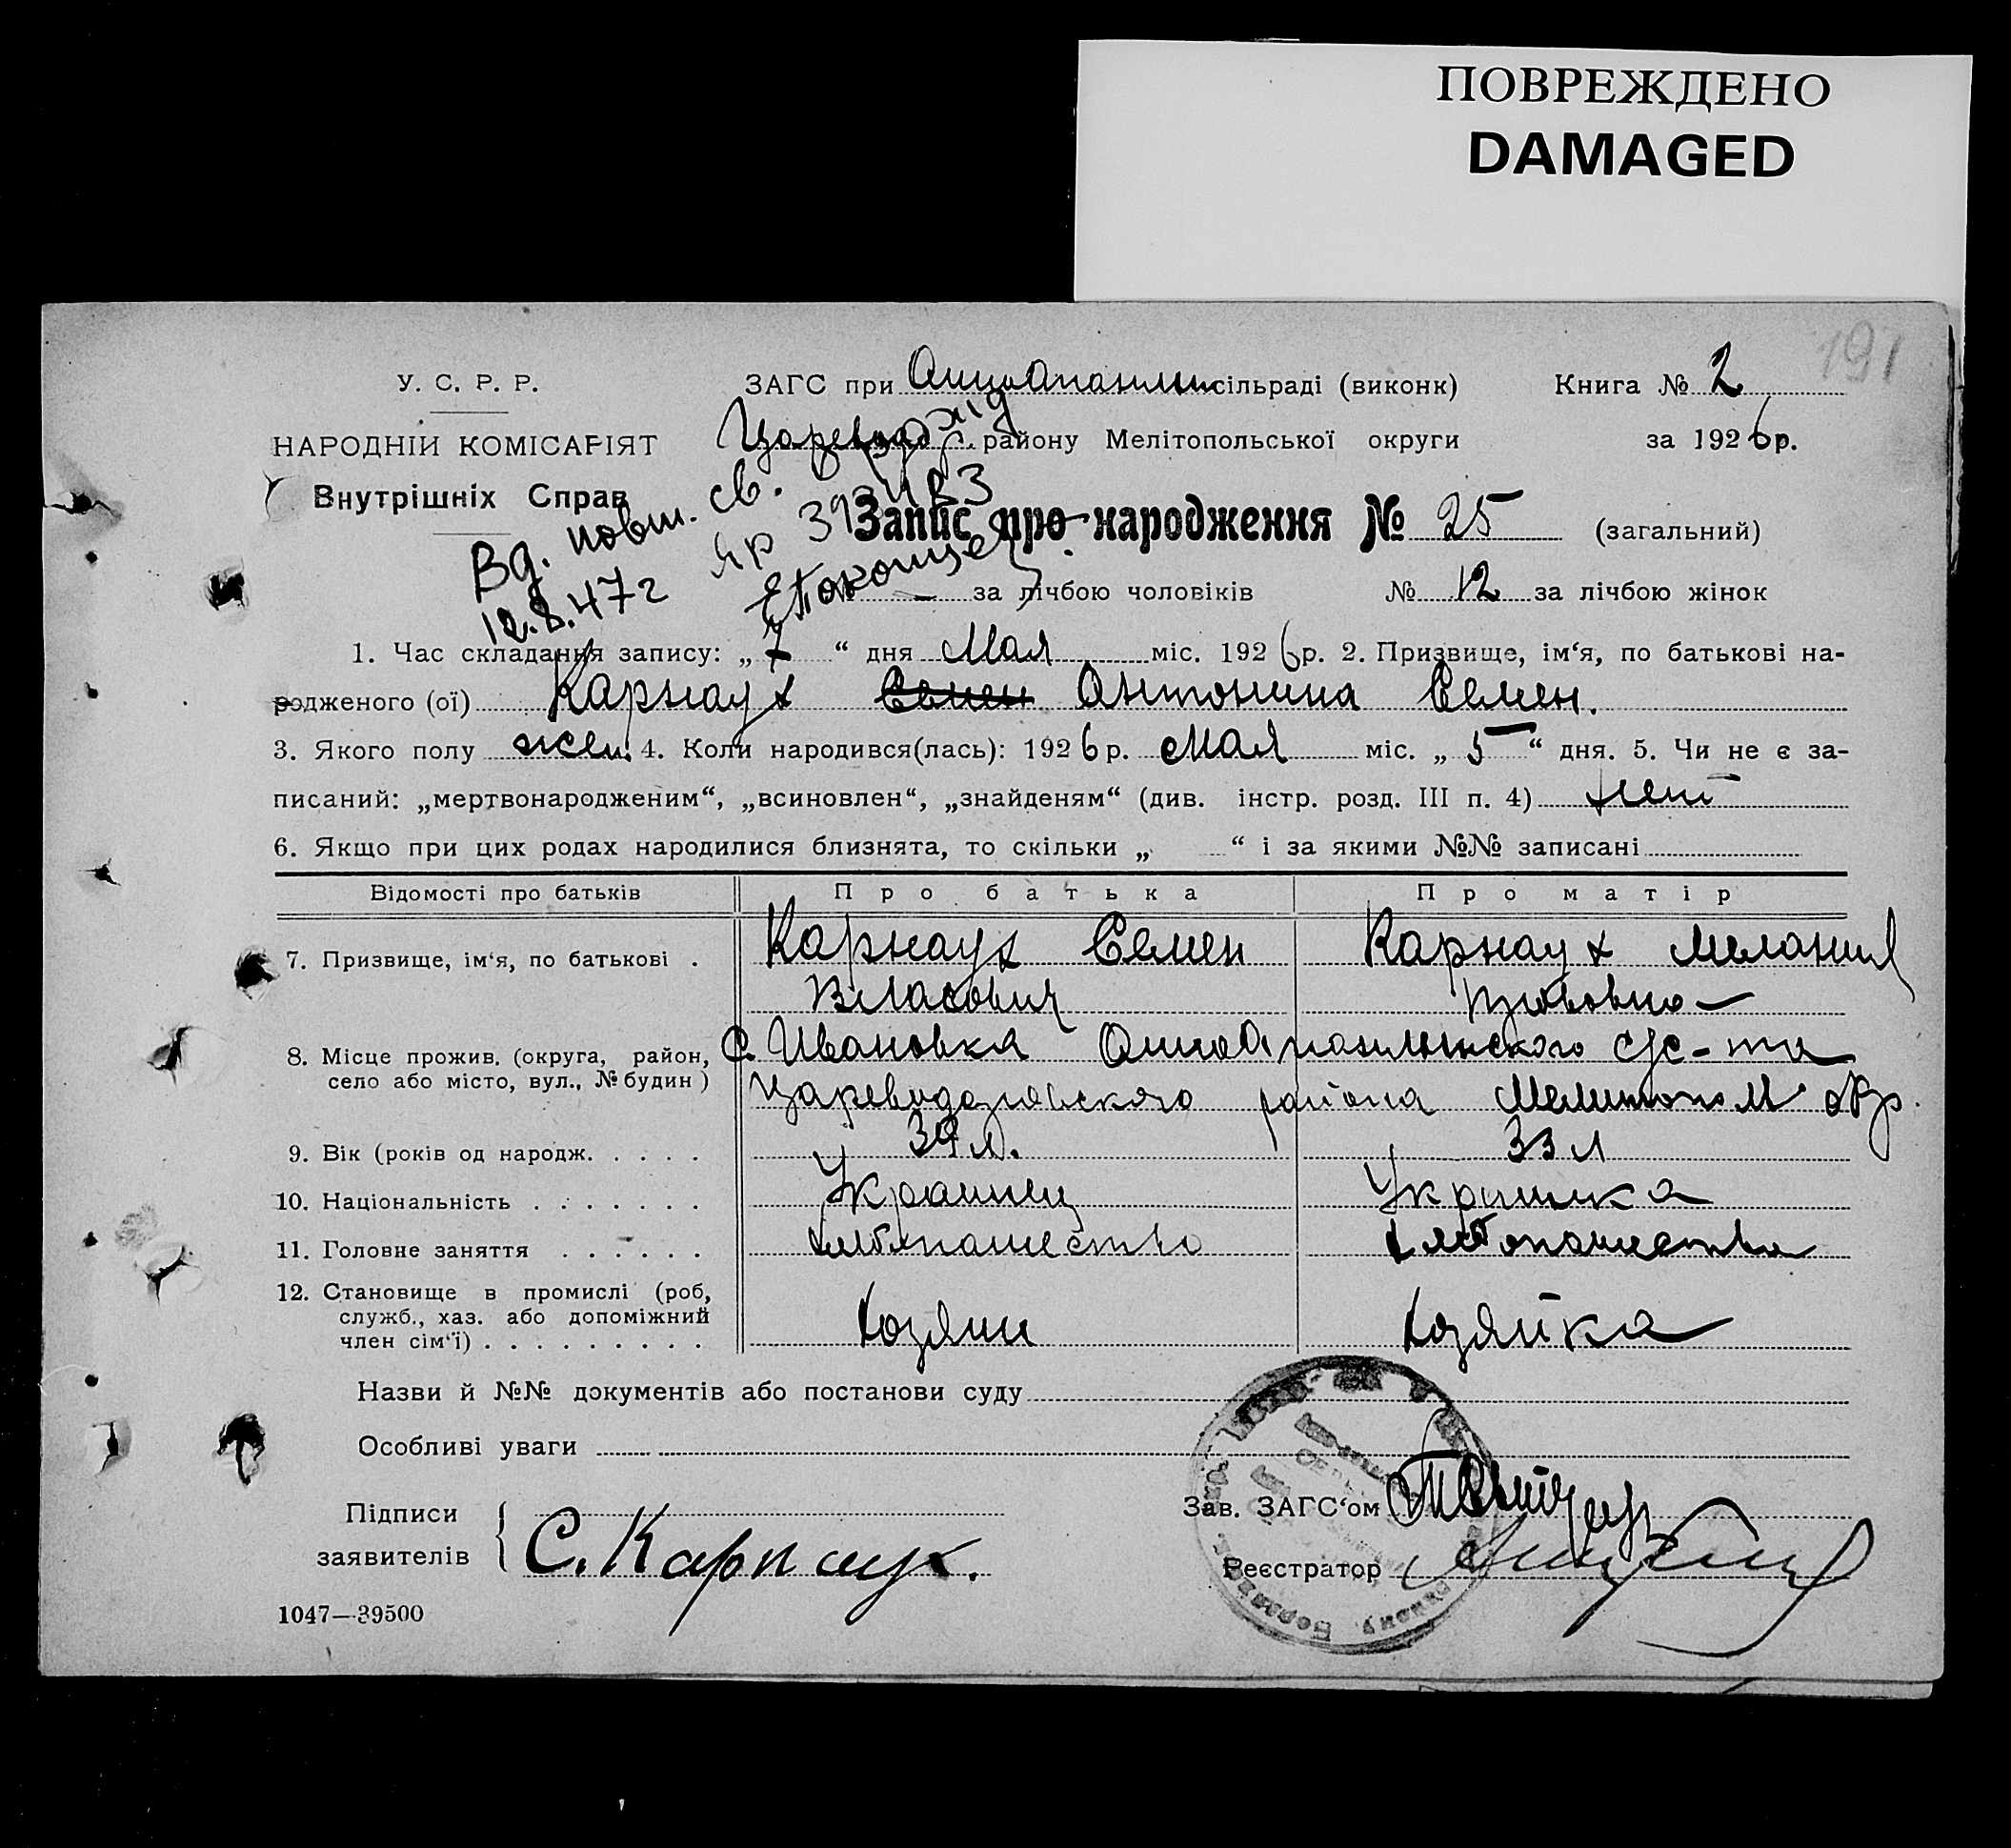 ПОВРЕЖДЕНО
DAMAGED
191
У. С. Р. Р.
ЗАГС при сільраді (виконк)
Книга № 2
НАРОДНІЙ КОМІСАРІЯТ
району Мелітопольської округи
за 1926 р.
Внутрішніх Справ
Вд. повт. св. о рожд
12.8.47 г
Запис про народження № 25 (загальний)
— за лічбою чоловіків № 12 за лічбою жінок
1. Час складання запису: „ 7 “ дня Мая міс. 1926 р. 2. Призвище, ім‘я, по батькові на-
родженого (ої) Карнаух Семен Антонина Семен.
3. Якого полу жен. 4. Коли народився(лась): 1926 р. Мая міс. „ 5 “ дня. 5. Чи не є за-
писаний: „мертвонародженим“, „всиновлен“, „знайденям“ (див. інстр. розд. III п. 4) нет
6. Якщо при цих родах народилися близнята, то скільки „ “ і за якими №№ записані
Відомості про батьків Про батька Про матір
7. Призвище, ім‘я, по батькові . Карнаух Семен Карнаух Мелания
Власович
8. Місце прожив. (округа, район, с. Ивановка
село або місто, вул., № будин) района Мелитопол окр.
9. Вік (років од народж. . . . . 39 л. 33 л
10. Національність . . . . . . . Украинец Украинка
11. Головне заняття . . . . . . хлебопашество хлебопашество
12. Становище в промислі (роб,
служб., хаз. або допоміжний
член сім‘ї) . . . . . . . . . Хозяин Хозяйка
Назви й №№ документів або постанови суду
Особливі уваги
Підписи
заявителів
С. Карнаух.
Зав. ЗАГС‘ом
Реєстратор
1047—39500